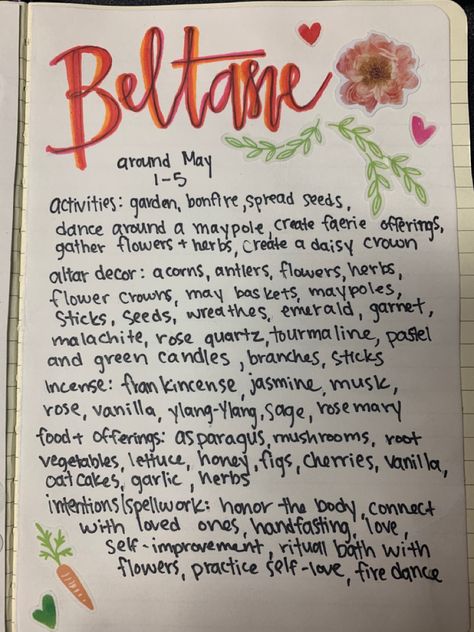 Beltane
around May
1-5
activities: garden, bonfire, spread seeds,
dance around a maypole, create faerie offerings,
gather flowers + herbs, create a daisy crown
altar decor: acorns, antlers, flowers, herbs,
flower crowns, may baskets, maypoles,
sticks, seeds, wreathes, emerald, garnet,
malachite, rose quartz, tourmaline, pastel
and green candles, branches, sticks
incense: frankincense, jasmine, musk,
rose, vanilla, ylang-ylang, sage, rosemary
food + offerings: asparagus, mushrooms, root
vegetables, lettuce, honey, figs, cherries, vanilla,
oat cakes, garlic, herbs
intentions/spellwork: honor the body, connect
with loved ones, handfasting, love,
self-improvement, ritual bath with
flowers, practice self-love, fire dance